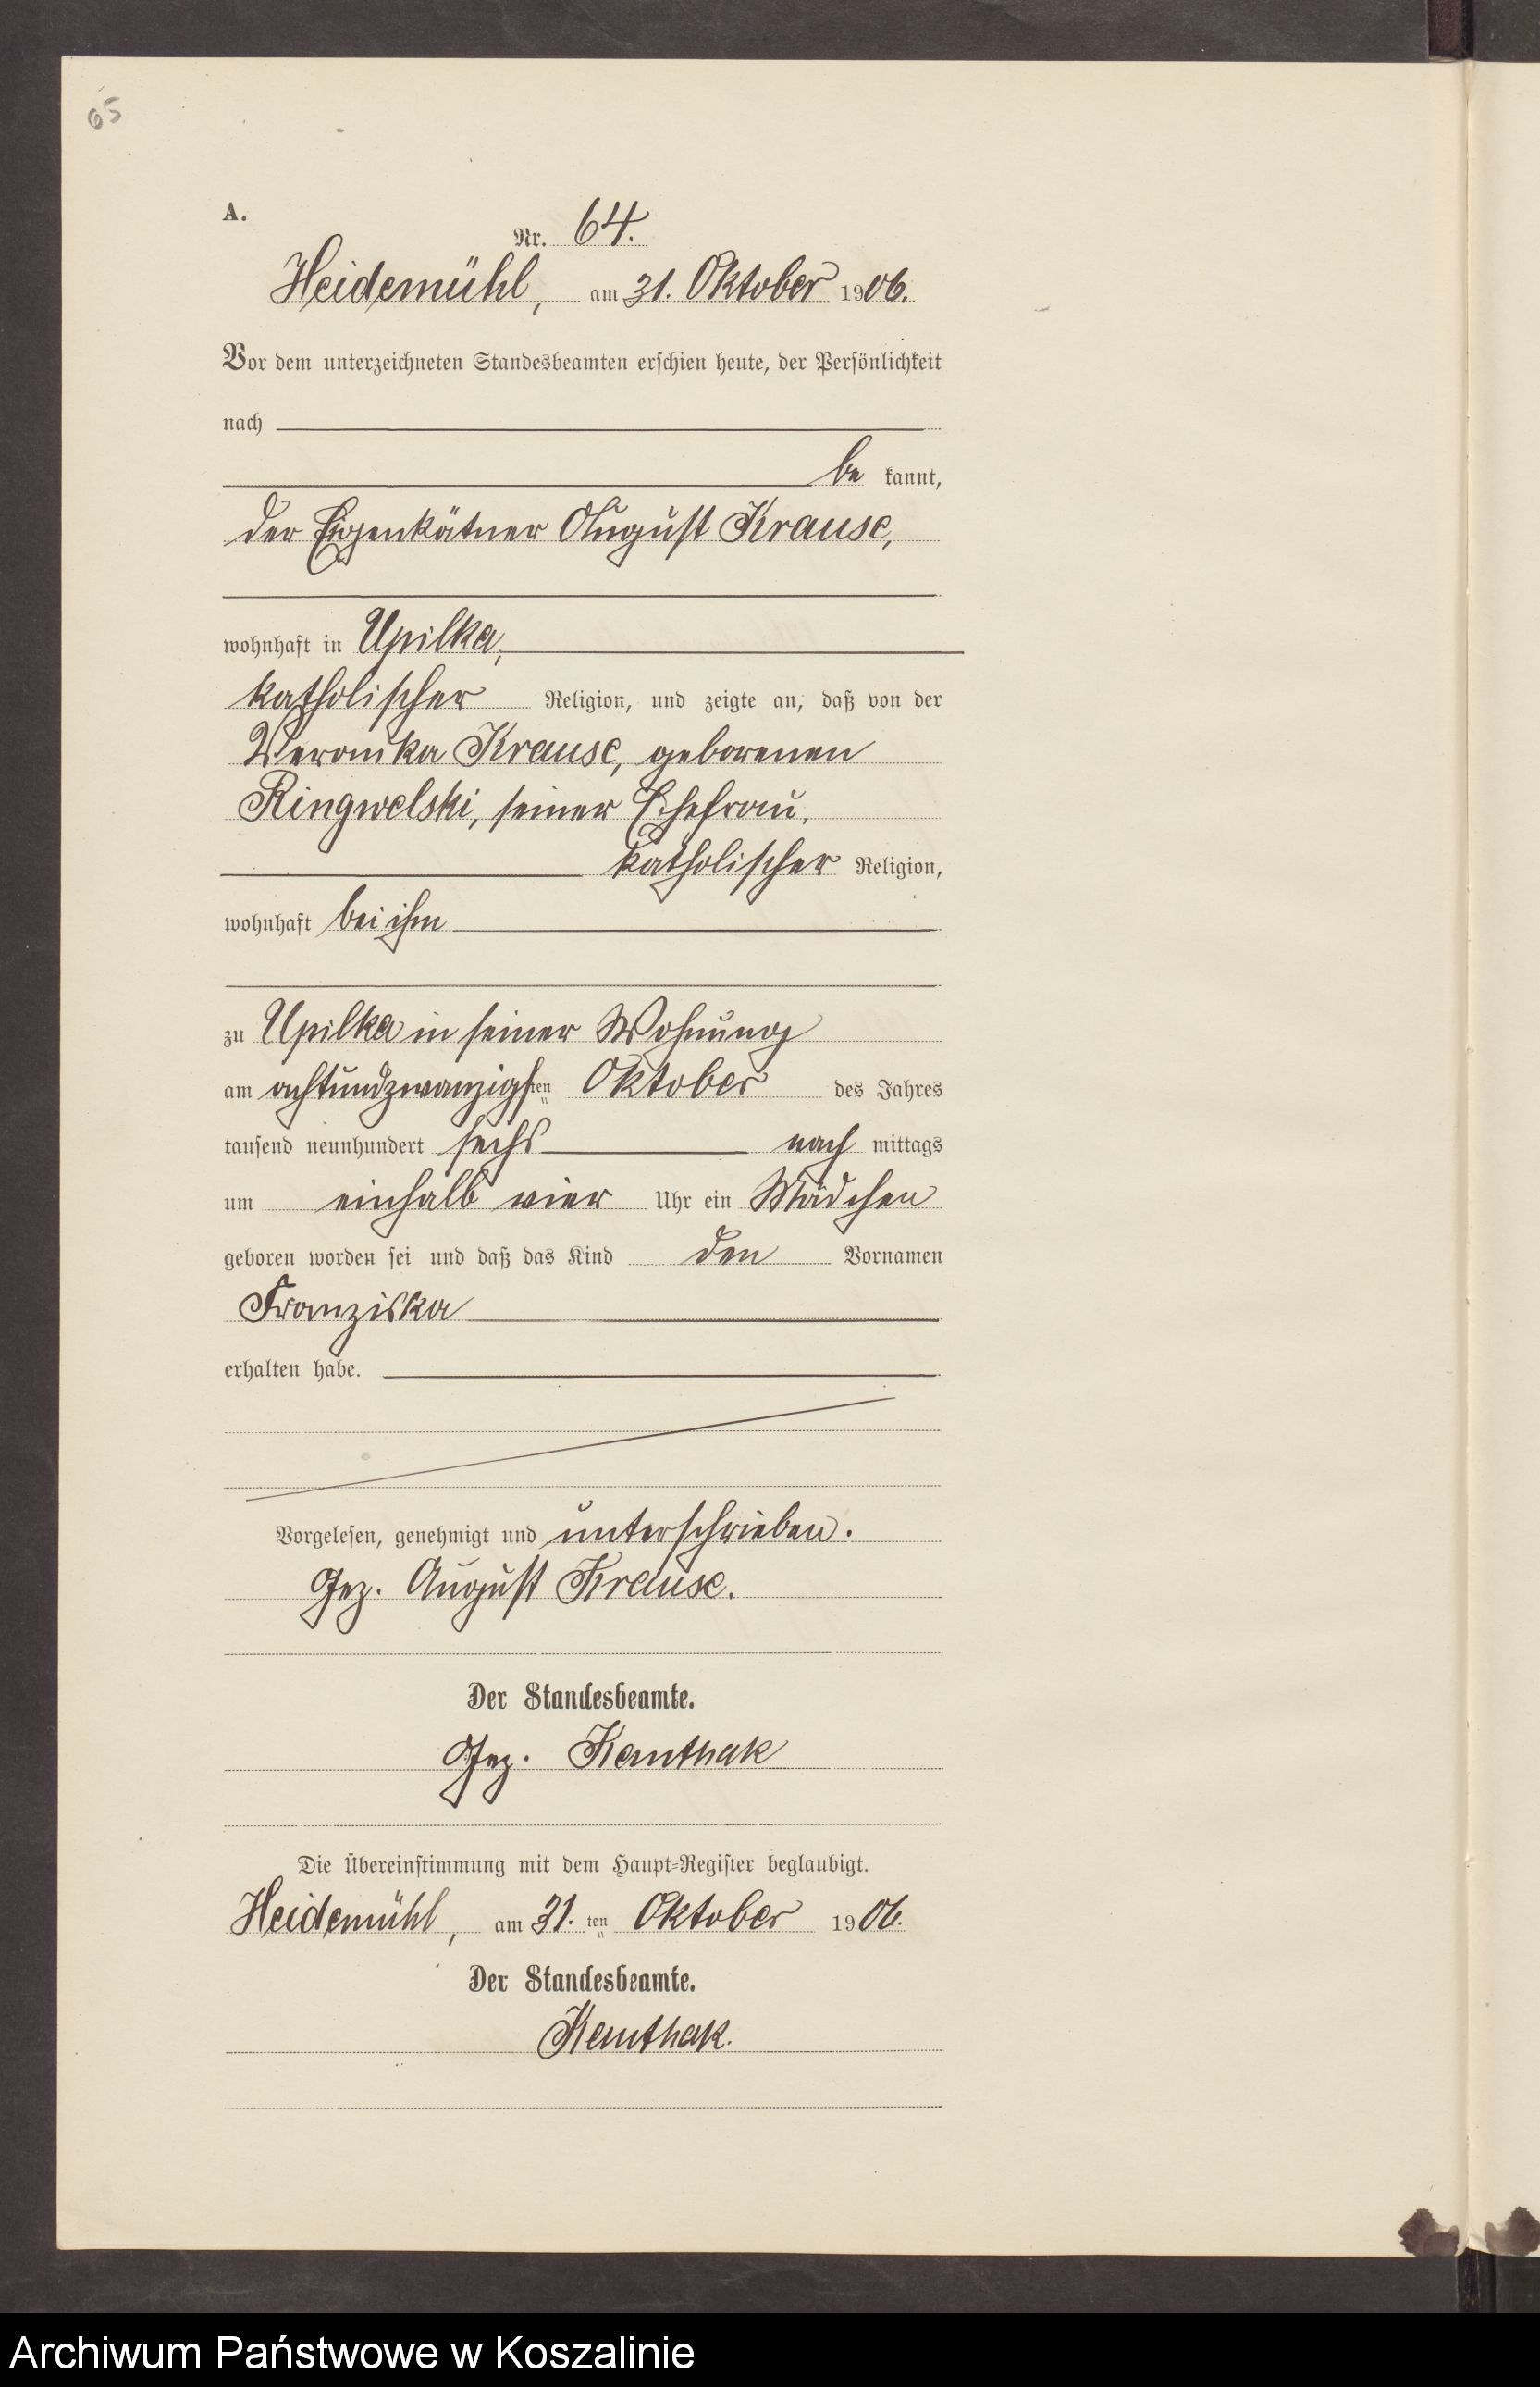 65
A.
Nr. 64.
Heidemühl, am 31. Oktober 1906.
Vor dem unterzeichneten Standesbeamten erschien heute, der Persönlichkeit
nach
be kannt,
der Eigenkätner August Krause,
wohnhaft in Upilka,
katholischer Religion, und zeigte an, daß von der
Veronika Krause, geborenen
Ringwelski, seiner Ehefrau,
katholischer Religion,
wohnhaft bei ihm
zu Upilka in seiner Wohnung
am achtundzwanzigsten Oktober des Jahres
tausend neunhundert sechs nach mittags
um einhalb vier Uhr ein Mädchen
geboren worden sei und daß das Kind den Vornamen
Franziska
erhalten habe.
Vorgelesen, genehmigt und unterschrieben.
Gez. August Krause.
Der Standesbeamte.
Gez.
Die Übereinstimmung mit dem Haupt-Register beglaubigt.
Heidemühl, am 31. ten Oktober 1906.
Der Standesbeamte.
Archiwum Państwowe w Koszalinie